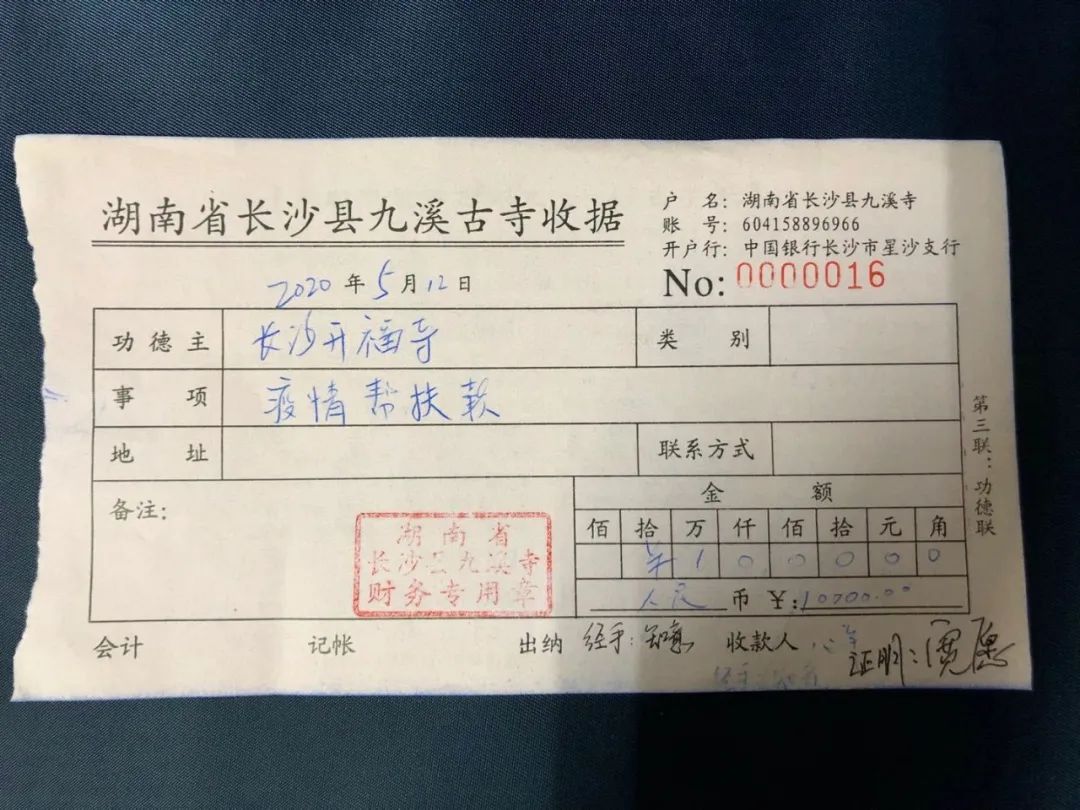 湖南省长沙县九溪古寺收据
户 名: 湖南省长沙县九溪寺
账 号: 604158896966
开户行: 中国银行长沙市星沙支行
No: 0000016
2020 年 5 月 12 日
功德主 长沙开福寺 类 别
事 项 疫情帮扶款
地 址 联系方式
备注:
金 额
佰 拾 万 仟 佰 拾 元 角
1 0 0 0 0 0
人民 币 ¥:
湖南省
长沙县九溪寺
财务专用章
第三联:功德联
会计 记帐 出纳 经手: 收款人 证明: